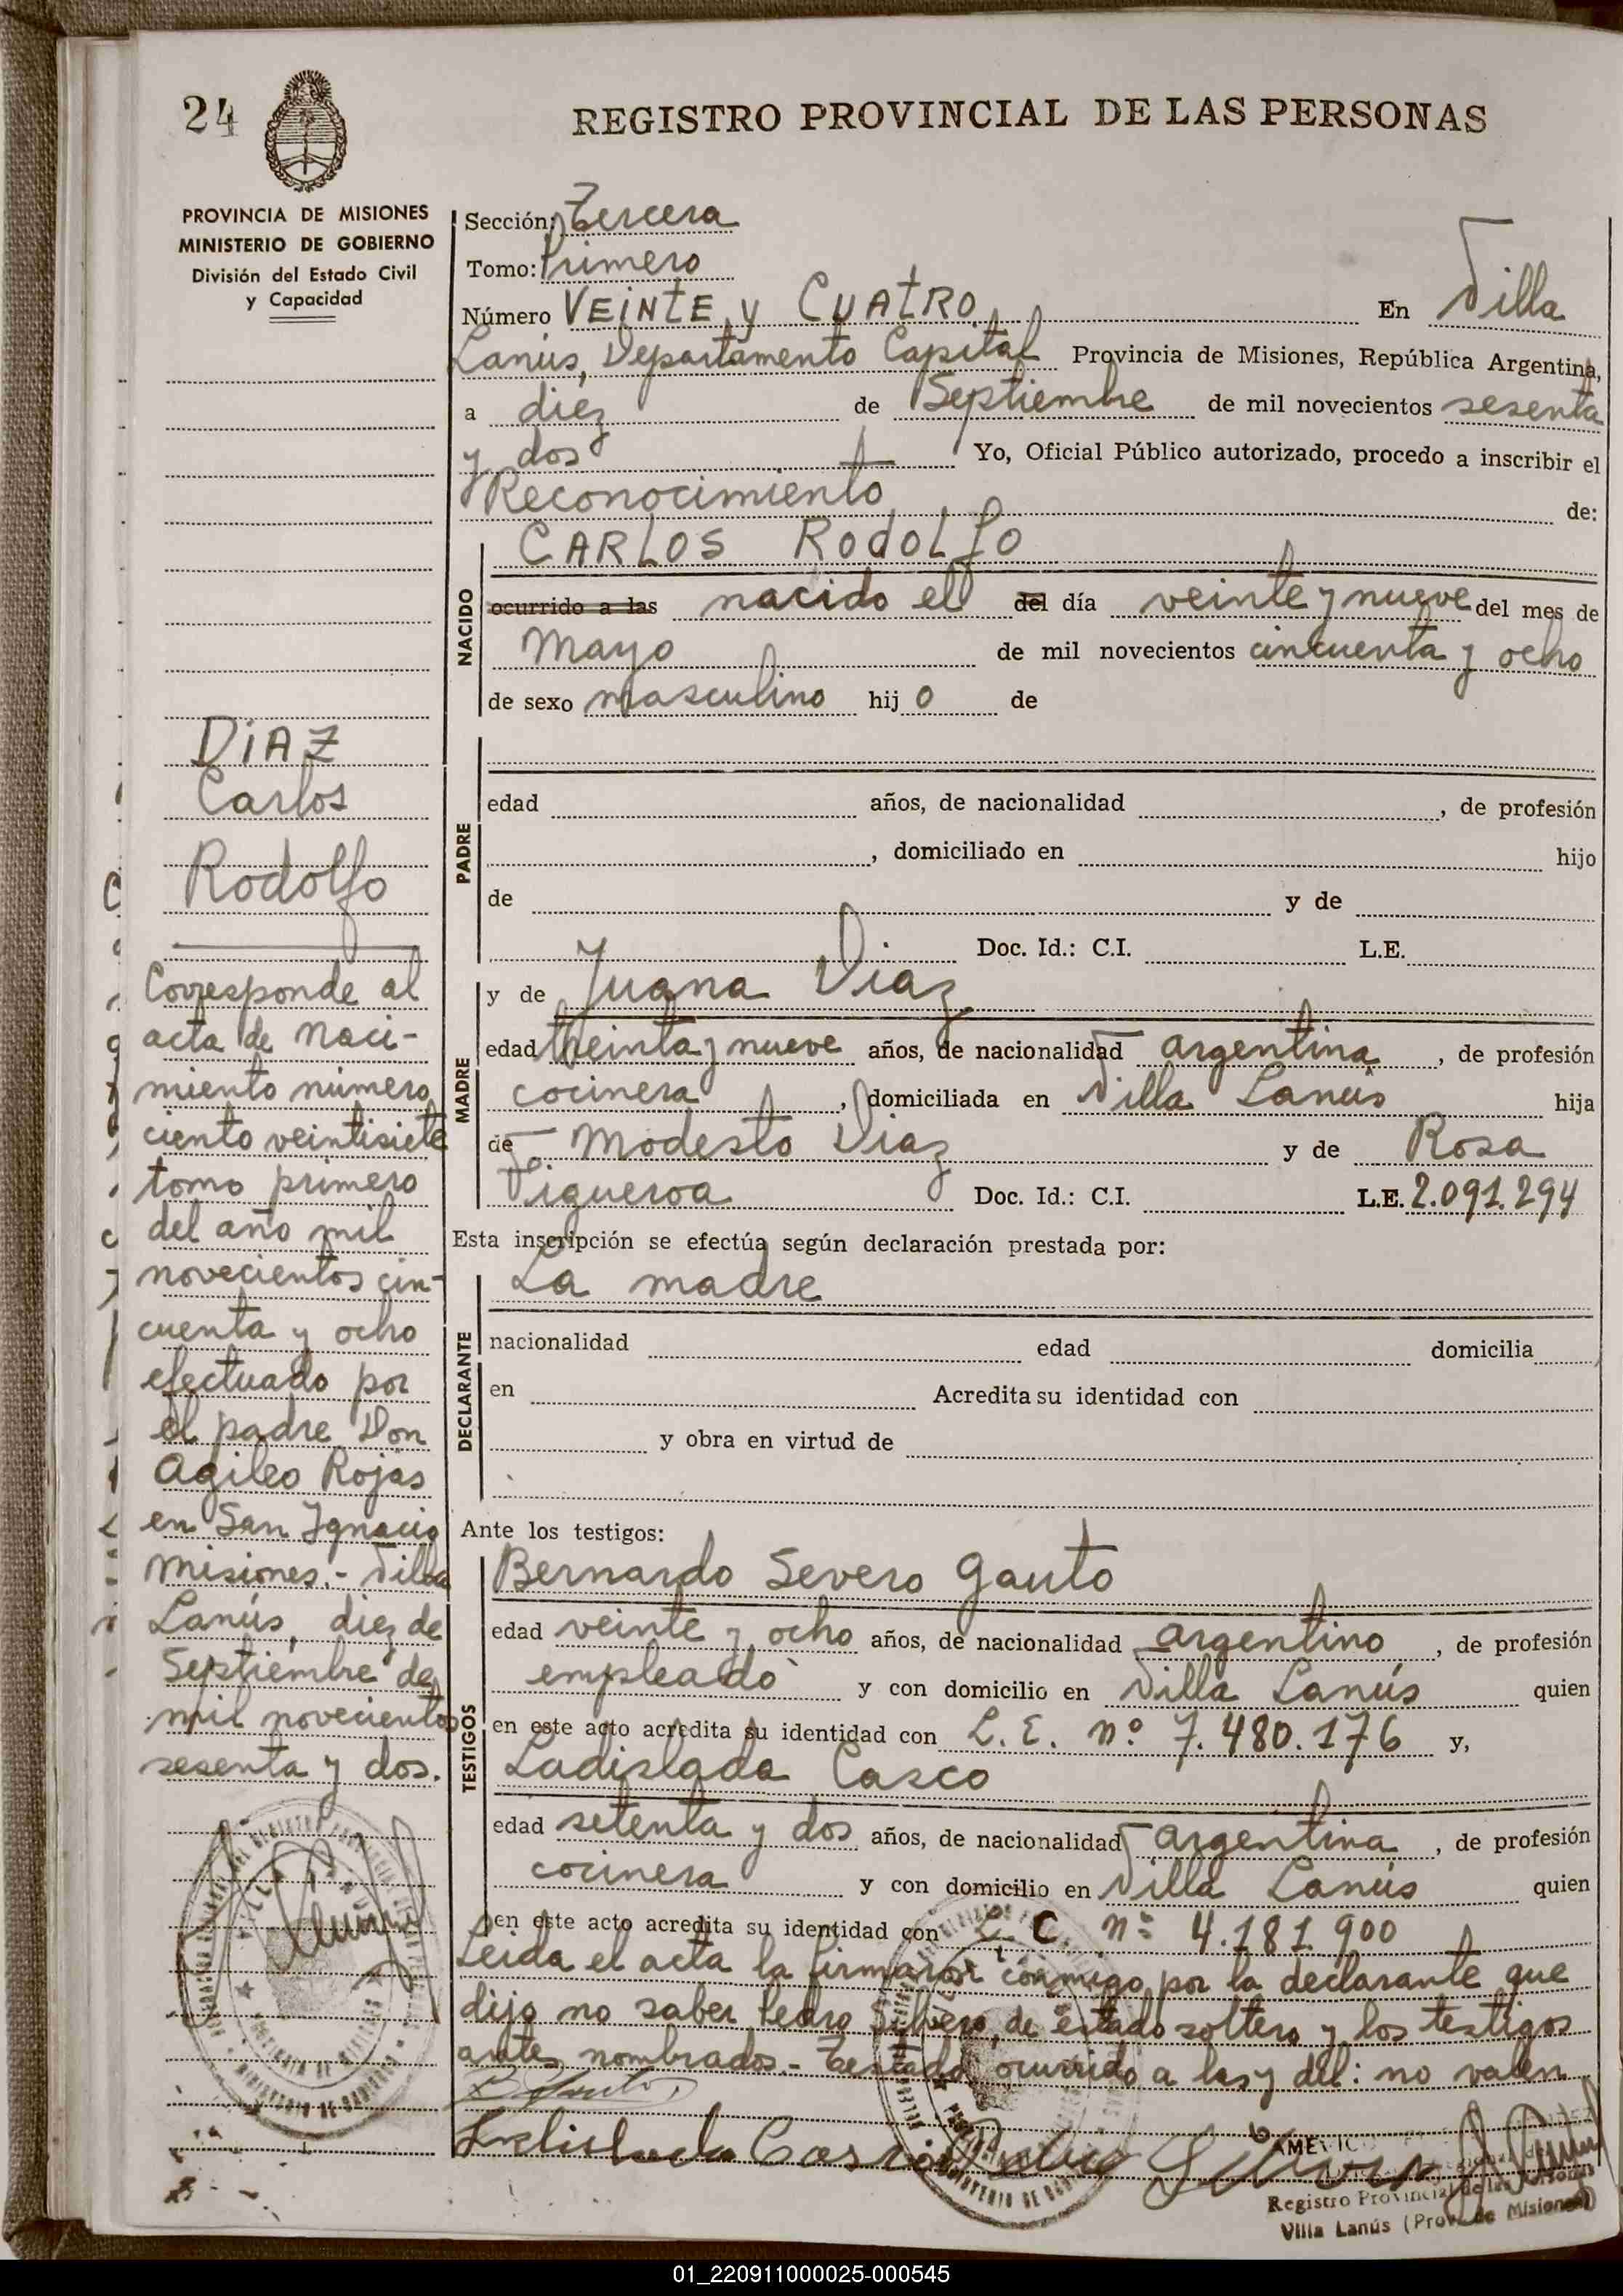 24
REGISTRO PROVINCIAL DE LAS PERSONAS
PROVINCIA DE MISIONES
MINISTERIO DE GOBIERNO
División del Estado Civil
y Capacidad
DIAZ
Carlos
Rodolfo
Corresponde al
acta de naci-
miento número
ciento veintisiete
tomo primero
del año mil
novecientos cin-
cuenta y ocho
efectuado por
el padre Don
Agileo Rojas
en San Ignacio
Misiones.- Villa
Lanús, diez de
Septiembre de
mil novecientos
sesenta y dos.
Sección: Tercera
Tomo: Primero
Número VEINTE y CUATRO En Villa
Lanús, Departamento Capital Provincia de Misiones, República Argentina,
a diez de Septiembre de mil novecientos sesenta
y dos Yo, Oficial Público autorizado, procedo a inscribir el
Reconocimiento de:
NACIDO
CARLOS RODOLFO
ocurrido a las nacido el del día veinte y nueve del mes de
Mayo de mil novecientos cincuenta y ocho
de sexo masculino hijo de
PADRE
edad años, de nacionalidad , de profesión
, domiciliado en hijo
de y de
Doc. Id.: C.I. L.E.
MADRE
y de Juana Diaz
edad treinta y nueve años, de nacionalidad argentina , de profesión
cocinera , domiciliada en Villa Lanús hija
de Modesto Diaz y de Rosa
Figueroa Doc. Id.: C.I. L.E. 2.091.294
Esta inscripción se efectúa según declaración prestada por:
DECLARANTE
La madre
nacionalidad edad domicilia
en Acredita su identidad con
y obra en virtud de
Ante los testigos:
TESTIGOS
Bernardo Severo Gauto
edad veinte y ocho años, de nacionalidad argentino , de profesión
empleado y con domicilio en Villa Lanús quien
en este acto acredita su identidad con L.E. nº 7.480.176 y,
Ladislada Casco
edad setenta y dos años, de nacionalidad argentina , de profesión
cocinera y con domicilio en Villa Lanús quien
en este acto acredita su identidad con L.C. nº 4.181.900
Leida el acta la firmaron conmigo por la declarante que
dijo no saber Pedro Silvero, de estado soltero y los testigos
antes nombrados.- Testado ocurrido a las y del: no valen
Ladislada Casco Pedro Silvero
Registro Provincial de las Personas
Villa Lanús (Prov. de Misiones)
01_220911000025-000545